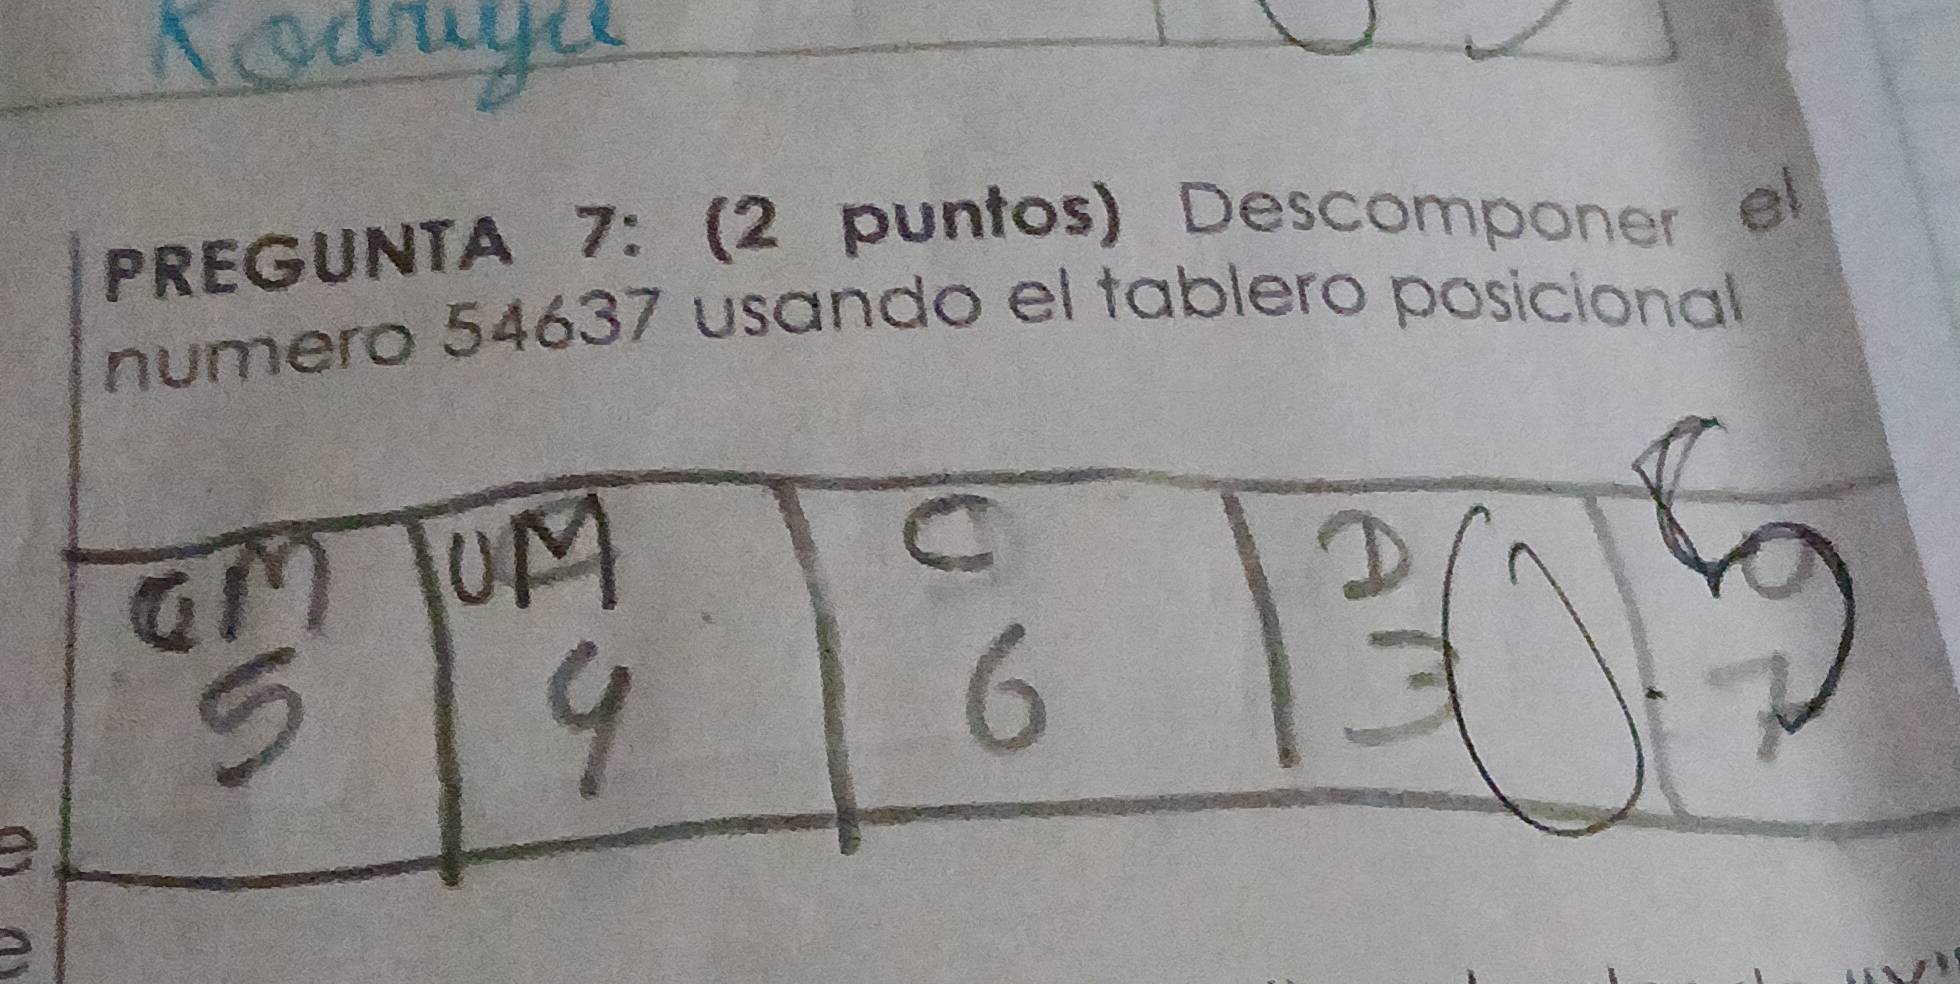 Rodrigu
PREGUNTA 7: (2 puntos) Descomponer el
numero 54637 usando el tablero posicional
UM C D
5 4 6 3 7
e
e
"V"